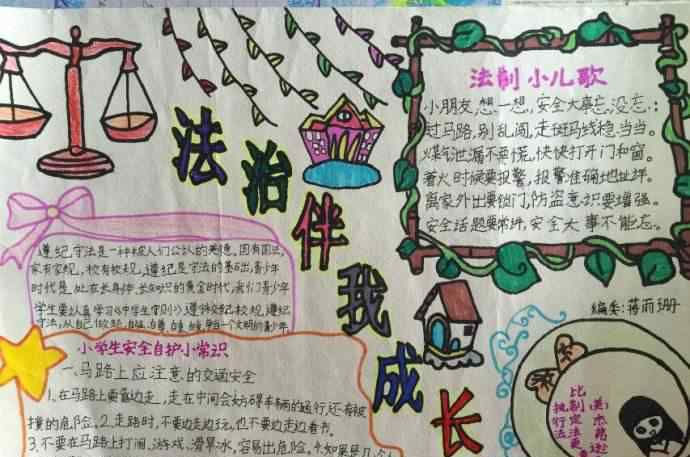 法治伴我成长
法制小儿歌
小朋友,想一想,安全大事忘没忘:
过马路,别乱闯,走斑马线稳当当。
煤气泄漏不要慌,快快打开门和窗。
着火时候要报警,报警准确地址详。
离家外出要锁门,防盗意识要增强。
安全话题要常讲,安全大事不能忘。
编委:蒋雨珊
遵纪守法是一种被人们公认的美德。国有国法,
家有家规,校有校规,遵纪是守法的基础,青少年
时代是处在长身体、长知识的黄金时代,我们青少年
学生要认真学习《中学生守则》遵守校纪校规,遵纪
守法,从自己做起,自尊、自律、做一个文明的青少年
小学生安全自护小常识
一、马路上应注意的交通安全
1、在马路上要靠边走,走在中间会妨碍车辆的运行,还有被
撞的危险。2、走路时,不要边走边玩,也不要边走边看书。
3、不要在马路上打闹、游戏、滑旱冰,容易出危险。4、如果是几个人
执行法
比制定法更重